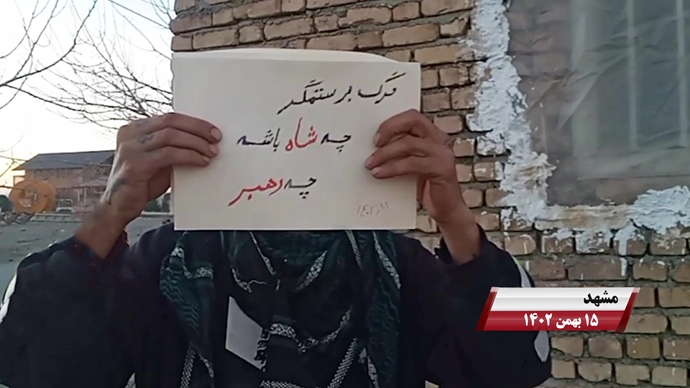 مرگ بر ستمگر
چه شاه باشه
چه رهبر
مشهد
۱۵ بهمن ۱۴۰۲